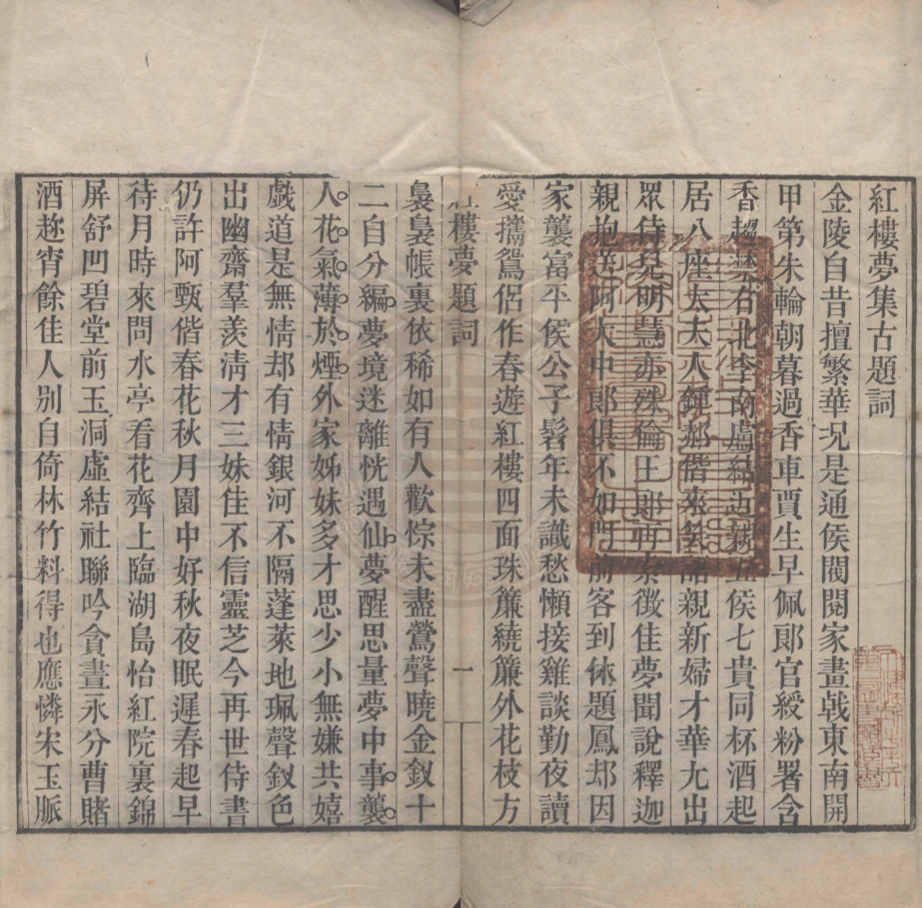 紅樓夢集古題詞
金陵自昔擅繁華况是通侯閥閱家畫戟東南開
甲第朱輪朝暮過香車賈生早佩郎官綬粉署含
香趨禁右北李南盧結近親五侯七貴同杯酒起
居八座太夫人鍾郝偕來契諸親新婦才華尢出
眾侍兒明慧亦殊倫王郎再索徵佳夢聞說釋迦
親抱送阿大中郎俱不如門前客到休題鳳却因
家襲富平侯公子髫年未識愁懶接雞談勤夜讀
愛攜鴛侶作春遊紅樓四面珠簾繞簾外花枝方
樓夢題詞
一
裊裊帳裏依稀如有人歡悰未盡鶯聲曉金釵十
二自分編夢境迷離恍遇仙夢醒思量夢中事襲
人花氣薄於煙外家姊妹多才思少小無嫌共嬉
戲道是無情却有情銀河不隔蓬萊地珮聲釵色
出幽齋羣羨淸才三妹佳不信靈芝今再世侍書
仍許阿甄偕春花秋月園中好秋夜眠遲春起早
待月時來問水亭看花齊上臨湖島怡紅院裏錦
屏舒凹碧堂前玉洞虛結社聯吟貪晝永分曹賭
酒趂宵餘佳人别自倚林竹料得也應憐宋玉脈